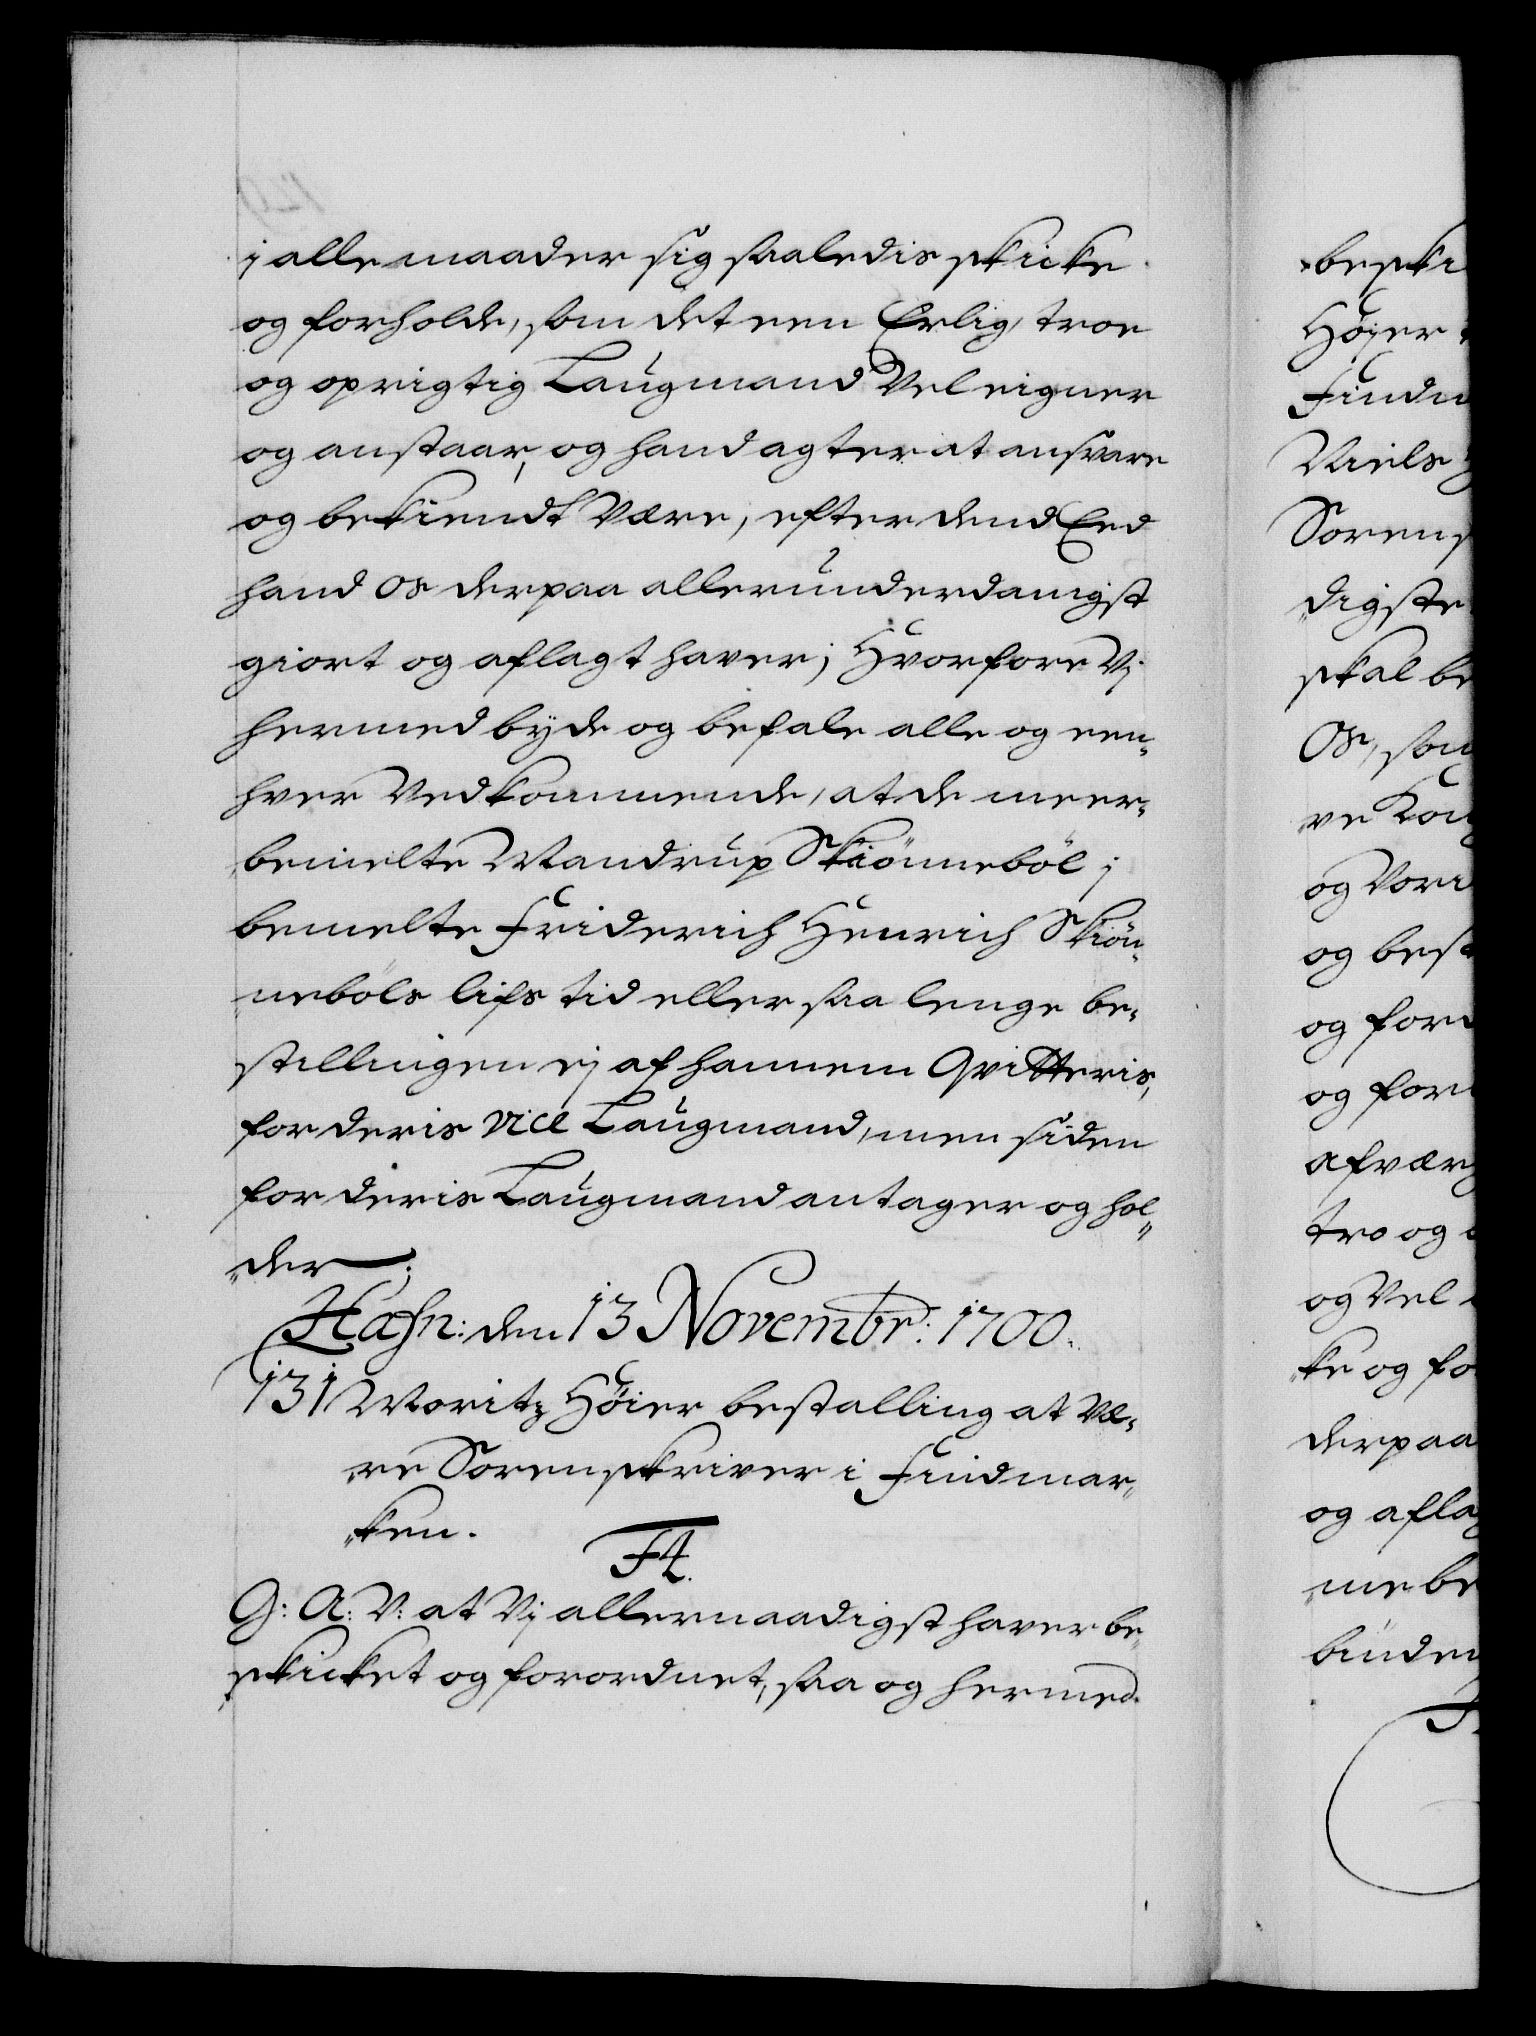 j alle maader sig saaledis skicke
og forholde, som det een Erlig, troe
og oprigtig Laugmand Vel eigner
og anstaar, og hand agter at ansvare
og bekiendt Være, efter dend Eed
hand os derpaa allerunderdanigst
giort og aflagt haver; Hvorfore Vj
hermed byde og befale alle og een-
hver Vedkommende, at de meer-
bemelte Mandrup Skiönneböl j
bemelte Friderich Henrich Skiön-
neböls lifs tid eller saa lenge be-
stillingen ej af hannem Qvitteris,
for deris Vice Laugmand, men siden
for deris Laugmand antager og hol-
der;
Hafn: den 13 Novembr: 1700.
131 Moritz Höier bestalling at Væ-
re Sorenskriver i Findmar-
ken.
F4.
G: A: V: at Vj allernaadigst haver be-
skicket og forordnet, saa og hermed
beski
Höjer
Findm
Niels
Sorens
digste
skal be
Os, som
ve Kon
og Vori
og best
og for
og for
afværg
tro og
og Vel
ke og fo
derpaa
og aflag
me be
binden